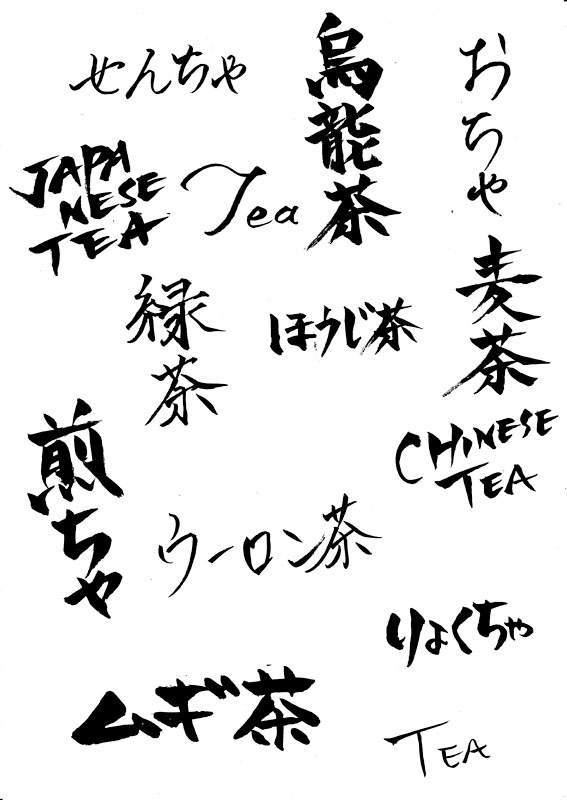 せんちゃ
烏龍茶
おちゃ
JAPA
NESE
TEA
Tea
緑茶
ほうじ茶
麦茶
煎ちゃ
CHINESE
TEA
ウーロン茶
りょくちゃ
ムギ茶
TEA